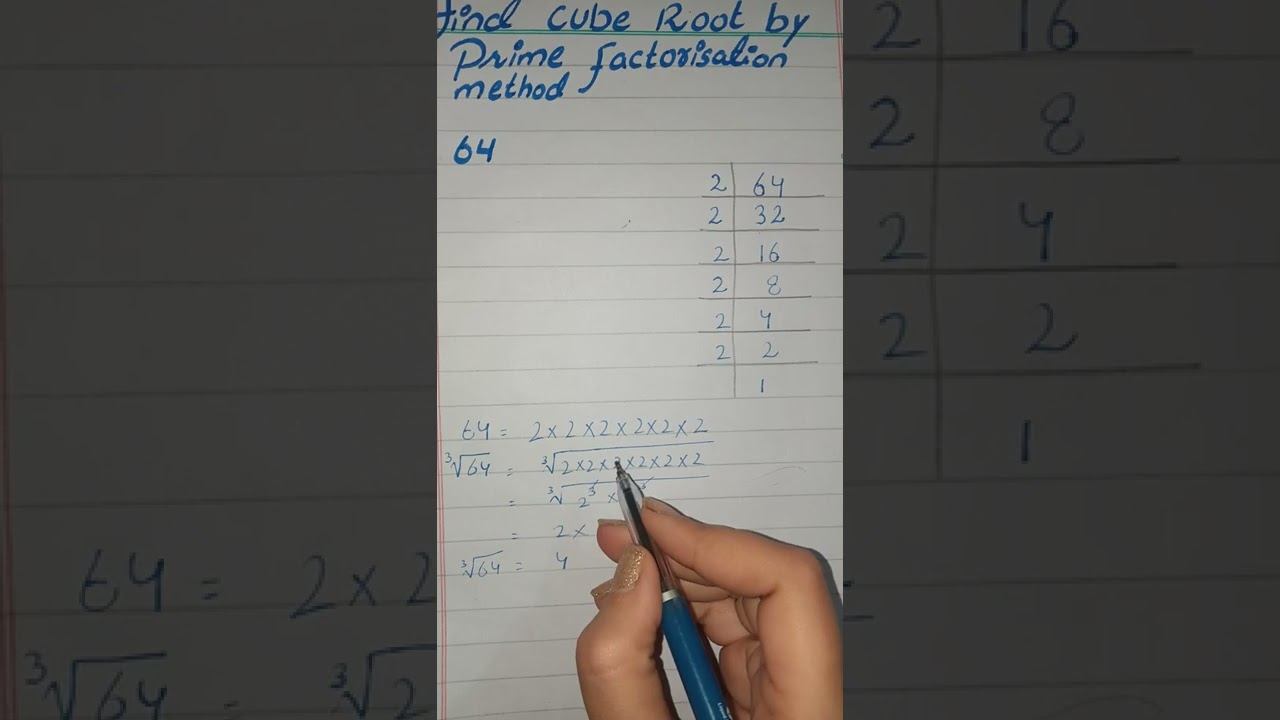 find Cube Root by
Prime factorisation
method
64
2 64
2 32
2 16
2 8
2 4
2 2
1
64 = 2×2×2×2×2×2
³√64 = ³√2×2×2×2×2×2
= ³√2³ × ³
= 2×
³√64 = 4
2 16
2 8
2 4
2 2
1
64 = 2×2
³√64 = ³√2